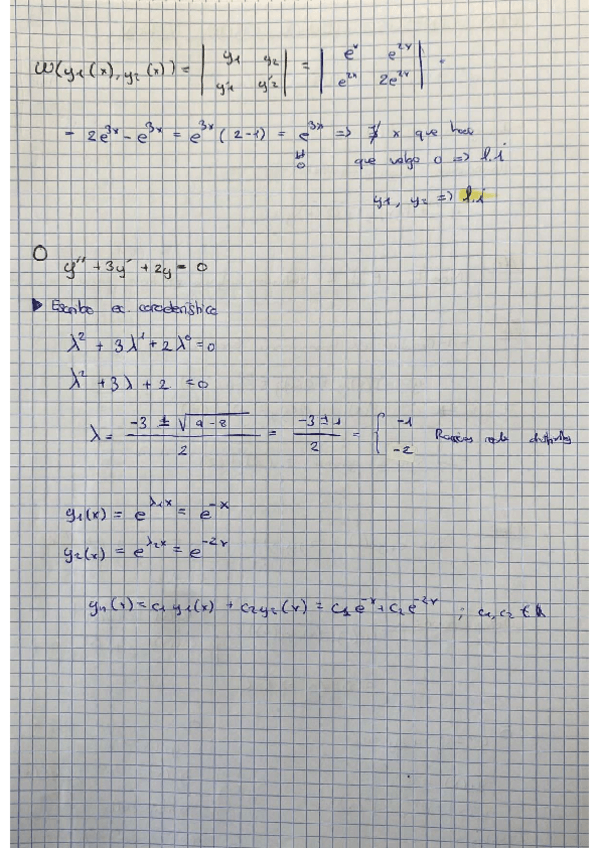 W(y1(x), y2(x)) = | y1 y2 | = | e^x e^2x | =
| y'1 y'2 | | e^2x 2e^2x |
= 2e^3x - e^3x = e^3x (2-1) = e^3x => ∄ x que hace
≠ 0 que valga 0 => l.i
y1, y2 => l.i
y'' + 3y' + 2y = 0
▶ Escribo ec. característica
λ^2 + 3λ^1 + 2λ^0 = 0
λ^2 + 3λ + 2 = 0
λ = (-3 ± √(9-8)) / 2 = (-3 ± 1) / 2 = { -1
-2 Raíces reales distintas
y1(x) = e^λ1x = e^-x
y2(x) = e^λ2x = e^-2x
yh(x) = c1 y1(x) + c2 y2(x) = c1 e^-x + c2 e^-2x ; c1, c2 ∈ ℝ